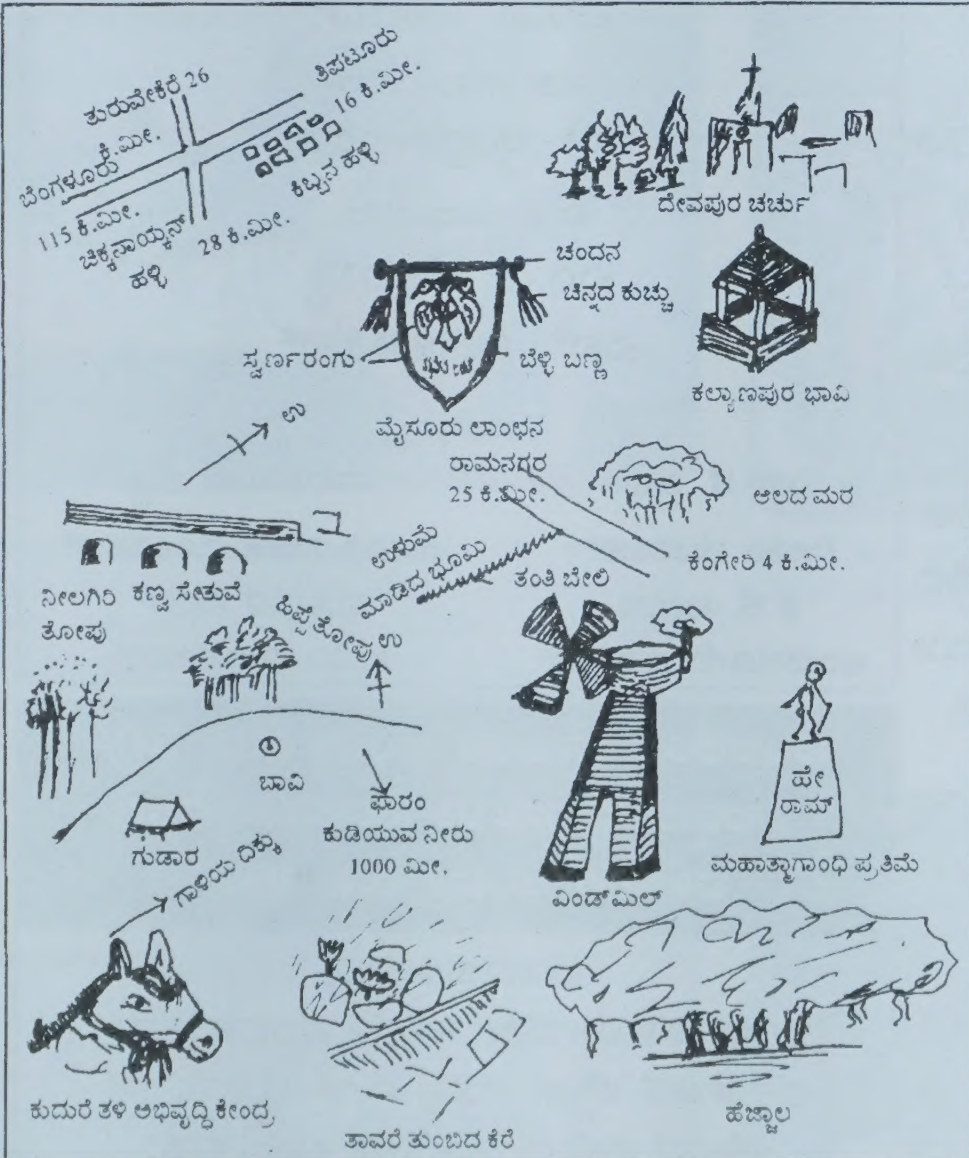 ತುರುವೇಕೆರೆ 26
ಕಿ.ಮೀ.
ತಿಪಟೂರು
16 ಕಿ.ಮೀ.
ಬೆಂಗಳೂರು
115 ಕಿ.ಮೀ.
ಚಿಕ್ಕನಾಯ್ಕನ್
ಹಳ್ಳಿ
28 ಕಿ.ಮೀ.
ಕಿಬ್ಬನ ಹಳ್ಳಿ
ದೇವಪುರ ಚರ್ಚು
ಚಂದನ
ಚಿನ್ನದ ಕುಚ್ಚು
ಸ್ವರ್ಣರಂಗು
ಬೆಳ್ಳಿ ಬಣ್ಣ
ಮೈಸೂರು ಲಾಂಛನ
ಕಲ್ಯಾಣಪುರ ಭಾವಿ
ಉ
ರಾಮನಗರ
25 ಕಿ.ಮೀ.
ಆಲದ ಮರ
ಕೆಂಗೇರಿ 4 ಕಿ.ಮೀ.
ಉಳುಮೆ
ಮಾಡಿದ ಭೂಮಿ
ತಂತಿ ಬೇಲಿ
ನೀಲಗಿರಿ
ತೋಪು
ಕಣ್ವ ಸೇತುವೆ
ಹಿಪ್ಪೆತೋಪು
ಉ
ಬಾವಿ
ಗುಡಾರ
ಫಾರಂ
ಕುಡಿಯುವ ನೀರು
1000 ಮೀ.
ವಿಂಡ್‌ಮಿಲ್
ಹೇ
ರಾಮ್
ಮಹಾತ್ಮಾಗಾಂಧಿ ಪ್ರತಿಮೆ
ಗಾಳಿಯ ದಿಕ್ಕು
ಕುದುರೆ ತಳಿ ಅಭಿವೃದ್ಧಿ ಕೇಂದ್ರ
ತಾವರೆ ತುಂಬಿದ ಕೆರೆ
ಹೆಜ್ಜಾಲ